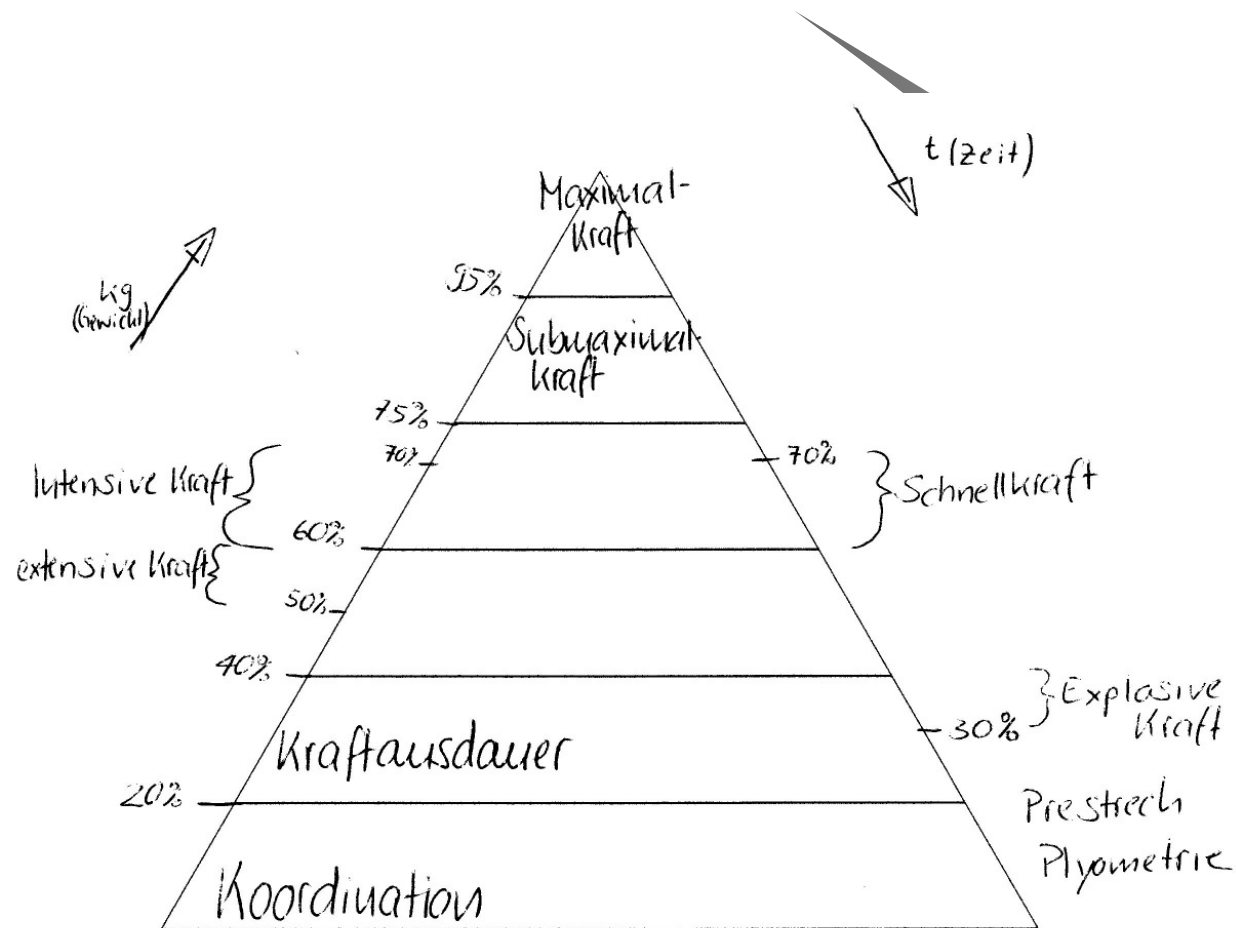 t (Zeit)
Maximal-
Kraft
kg
(Gewicht)
95%
Submaximal-
kraft
75%
70%
70%
Intensive Kraft
Schnellkraft
60%
extensive Kraft
50%
40%
Explosive
Kraft
30%
Kraftausdauer
20%
Prestrech
Plyometrie
Koordination